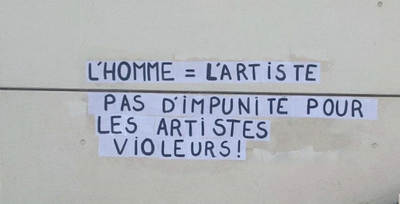 L'HOMME = L'ARTISTE
PAS D'IMPUNITE POUR
LES ARTISTES
VIOLEURS!